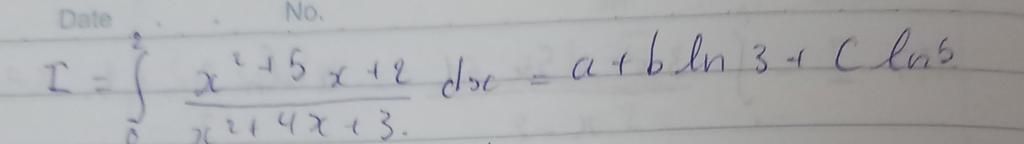 Date No.
I = ∫₀² (x² + 5x + 2)/(x² + 4x + 3.) dx = a + b ln 3 + C ln 5